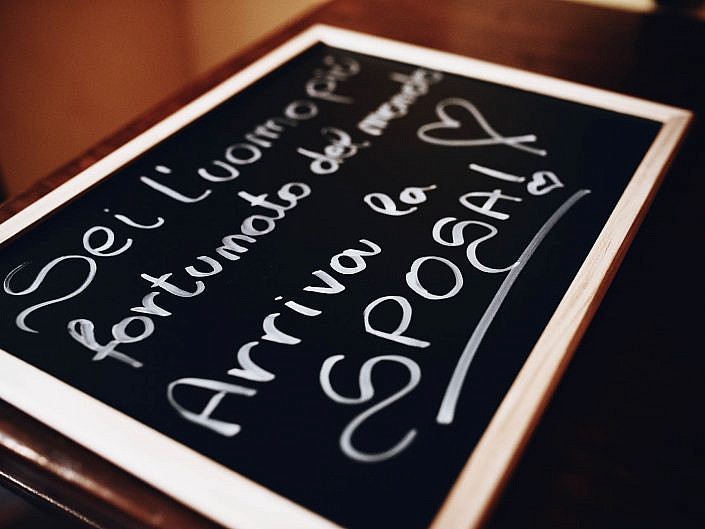 Sei L'uomo più
fortunato del mondo
Arriva la
SPOSA!